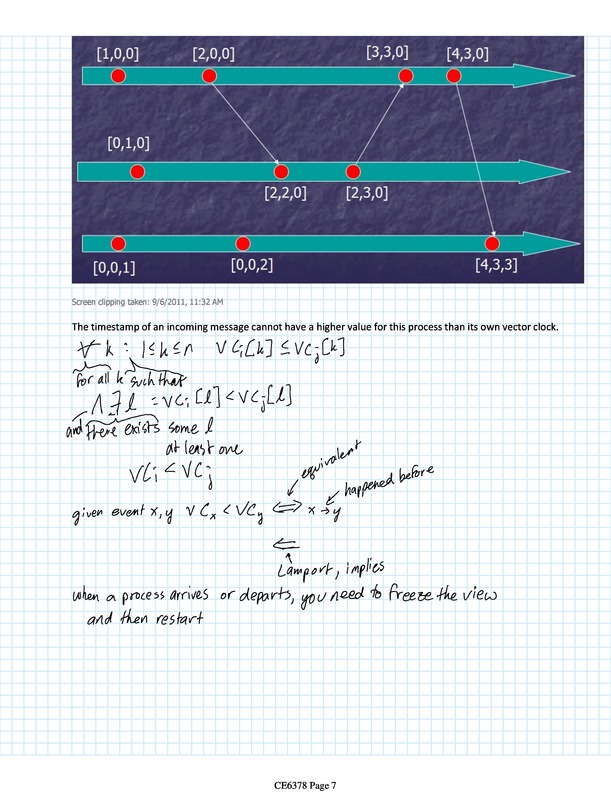 [1,0,0] [2,0,0] [3,3,0] [4,3,0]
[0,1,0]
[2,2,0] [2,3,0]
[0,0,1] [0,0,2] [4,3,3]
Screen clipping taken: 9/6/2011, 11:32 AM
The timestamp of an incoming message cannot have a higher value for this process than its own vector clock.
∀ k : 1≤k≤n VCi[k] ≤ VCj[k]
for all k such that
∧ ∃ l : VCi[l] < VCj[l]
and there exists some l
at least one
VCi < VCj
equivalent
happened before
given event x, y VCx < VCy ⟺ x → y
⟸
Lamport, implies
when a process arrives or departs, you need to freeze the view
and then restart
CE6378 Page 7